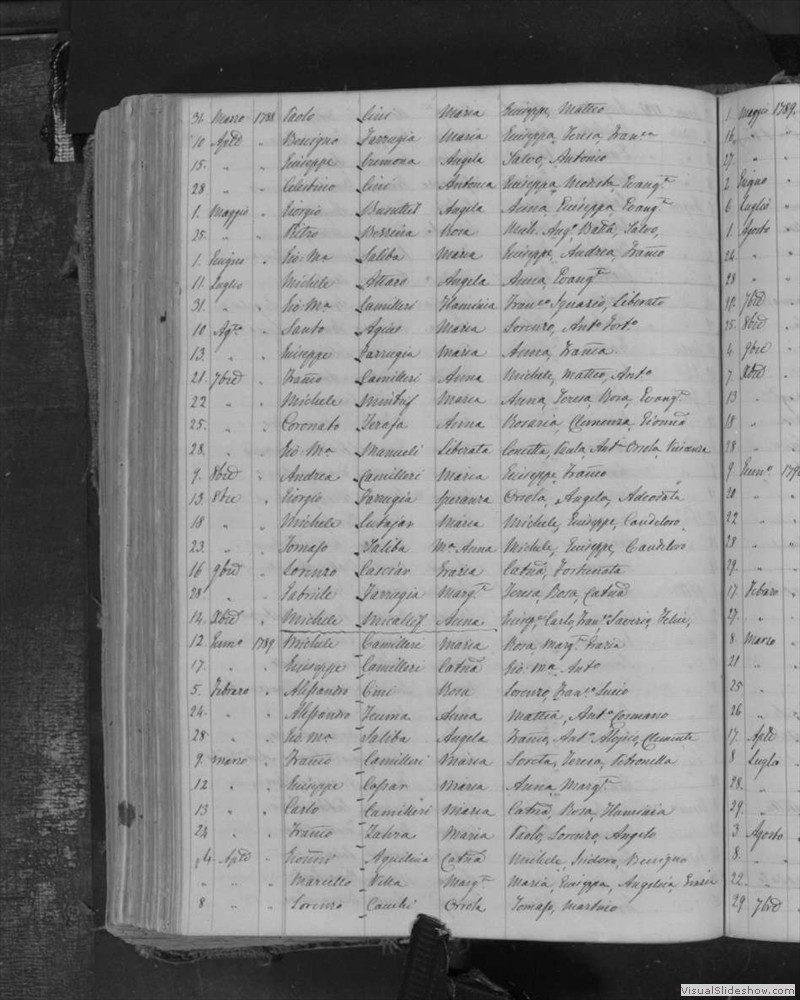 31. Marzo 1788 Paolo Cini Maria Giuseppe, Matteo
10 Aple „ Benigno Farrugia Maria Giuseppa, Teresa, Franca
15. „ „ Giuseppe Cremona Angela Salvo, Antonio
28 „ „ Celestino Cini Antonia Giuseppa, Modesta, Evangta
1. Maggio „ Giorgio Busuttil Angela Anna, Giuseppa, Evangta
25. „ „ Pietro Rosa Mich. Ang. Batta, Salvo,
1. Giugno „ Gio: Ma Saliba Maria Giuseppe, Andrea, Franco
11. Luglio „ Michele Attard Angela Anna, Evangta
31. „ „ Gio: Ma Camilleri Flaminia Franco Ignazio, Liberato
10 Agto „ Santo Agius Maria Lorenzo, Anto Forto
13. „ „ Giuseppe Farrugia Maria Anna, Franca
21. 7bre „ Franco Camilleri Anna Michele, Matteo, Anto
22 „ „ Michele Maria Anna, Teresa, Rosa, Evangta
25. „ „ Coronato Anna Rosaria, Clemenza,
28. „ „ Gio: Ma Manueli Liberata Concetta, Paola, Anta Orsola, Vincenza
9. 8bre „ Andrea Camilleri Maria Giuseppe, Franco
13. 8bre Giorgio Farrugia Speranza Orsola, Angela, Adeodata
18 „ „ Michele Cutajar Maria Michele, Giuseppe, Candeloro
23. „ „ Tomaso Saliba Ma Anna Michele, Giuseppe, Candeloro
16 9bre „ Lorenzo Grazia Catna, Fortunata
28 „ „ Gabriele Farrugia Margta Teresa, Rosa, Catna
14. Xbre „ Michele Micallef Anna Giuspe Carlo, Franco Saverio, Felice,
12. Genno 1789 Michele Camilleri Maria Rosa, Margta Grazia
17. „ „ Giuseppe Camilleri Catna Gio: Ma Anto
5. Febraro „ Alessandro Cini Rosa Lorenzo, Franco Lucio
24. „ „ Alessandro Anna Mattia, Anto Cosmano
28. „ „ Gio: Ma Saliba Angela Franco, Anto Aloysio, Clemente
9. Marzo „ Franco Camilleri Maria Loreta, Teresa, Petronilla
12 „ „ Giuseppe Cassar Maria Anna, Margta
13 „ „ Carlo Camilleri Maria Catna, Rosa, Flaminia
24 „ „ Franco Zahra Maria Paolo, Lorenzo, Angelo
Aple „ Aquilina Catna Michele, Isidoro, Benigno
„ „ „ Marcello Vella Margta Maria, Giuseppa, Angelica, Grazia
8 „ „ Lorenzo Orsola Tomaso, Martino
1. Maggio 1789.
16. „ „
27. „ „
2 Giugno „
6 Luglio „
1. Agosto „
24 „ „
28 „ „
7bre
25. 8bre
4 9bre
7. Xbre
13 „
18 „
28 „
9 Genno 179
20 „ „
22 „ „
28 „ „
29. „
17 Febraro „
27. „ „
8 Marzo „
21 „ „
25 „ „
26 „ „
17. Aple „
8 Luglo „
28. „
29. „
3. Agosto „
8. „
22. „ „
29 7bre
VisualSlideshow.com